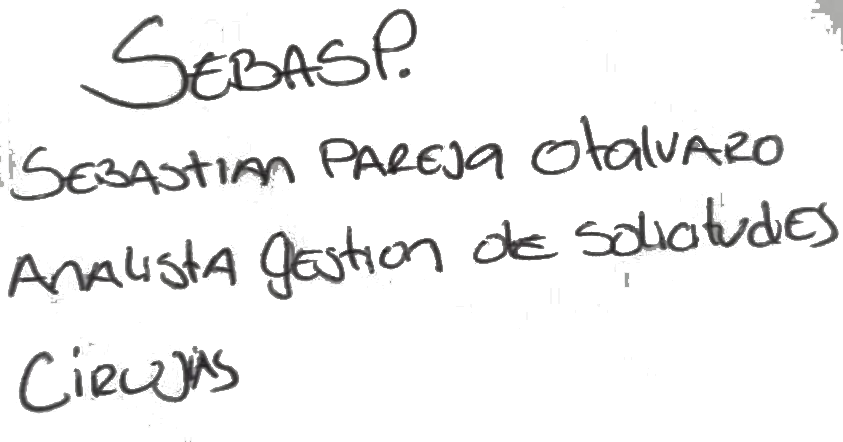 SEBASP.
SEBASTIAN PAREJA OtalVARO
ANALISTA gestion de solicitudes
CIRUJIAS